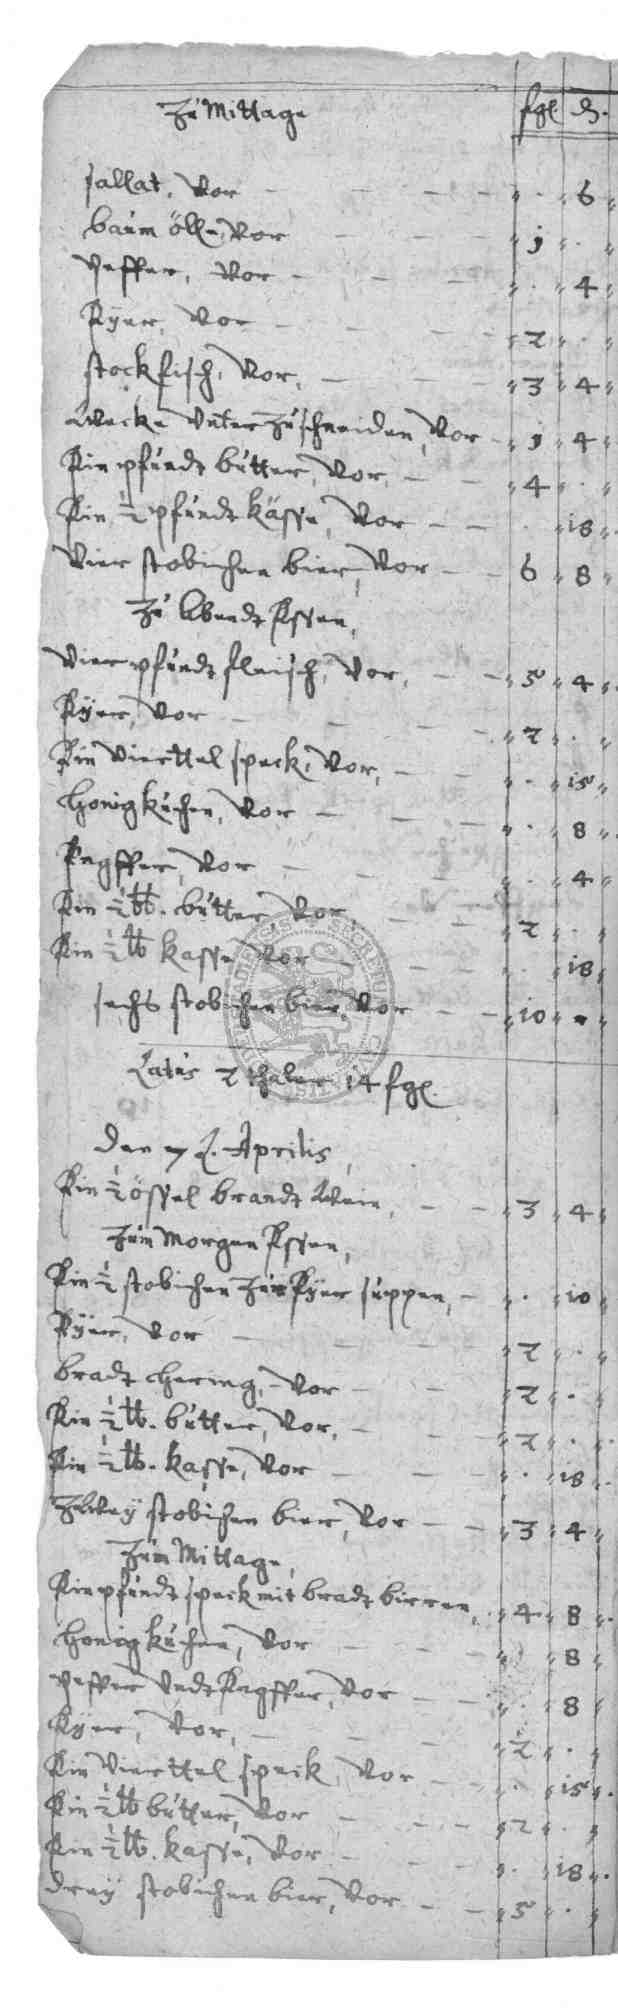 Zu Mittage fgl. d.
sallat, vor - - - " . " 6 "
baum öll, vor - - - " 1 " . "
Peffer, vor - - - " . " 4 "
Eÿer, vor - - - " 2 " . "
stockfisch, vor, - - - " 3 " 4 "
Wecke unter zu schneiden, vor - " 1 " 4 "
Ein pfundt butter, vor, - - " 4 " . "
Ein ½ pfundt kässe, vor - - . " 18 "
Vier stobichen bier, vor - - 6 " 8 "
Zu Abendt Essen,
Vier pfundt fleisch, vor, - - " 5 " 4 "
Eÿer, vor - - - " 2 " . "
Ein Vierttel speck, vor, - - " . " 15 "
Honigkuchen, vor - - - " . " 8 "
Engffer, vor - - - " . " 4 "
Ein ½ ℔. butter, vor, - - " 2 " . "
Ein ½ ℔ kasse, vor - - - " . " 18 "
sechs stobichen bier, vor - - " 10 " . "
Latus 2 thaler 14 fgl.
Den 7 Aprilis,
Ein ½ össel brandt Wein, - - " 3 " 4 "
Zum Morgen Essen,
Ein ½ stobichen zur Eÿer suppen, - " . " 10 "
Eÿer, vor - - - " 2 " . "
bradt Hering, vor - - " 2 " . "
Ein ½ ℔. butter, vor, - - " 2 " . "
Ein ½ ℔. kasse, vor - - - " . " 18 "
Zweÿ stobichen bier, vor - - " 3 " 4 "
Zum Mittage,
Ein pfundt speck mit bradt birren, " 4 " 8 "
Honigkuchen, vor - - - " " 8 "
Peffer undt Engffer, vor - - " . " 8 "
Eÿer, vor, - - - " 2 " . "
Ein Vierttel speck, vor - - " . " 15 "
Ein ½ ℔ butter, vor - - - " 2 " . "
Ein ½ ℔. kasse, vor - - - " . " 18 "
dreÿ stobichen bier, vor - - " 5 " . "